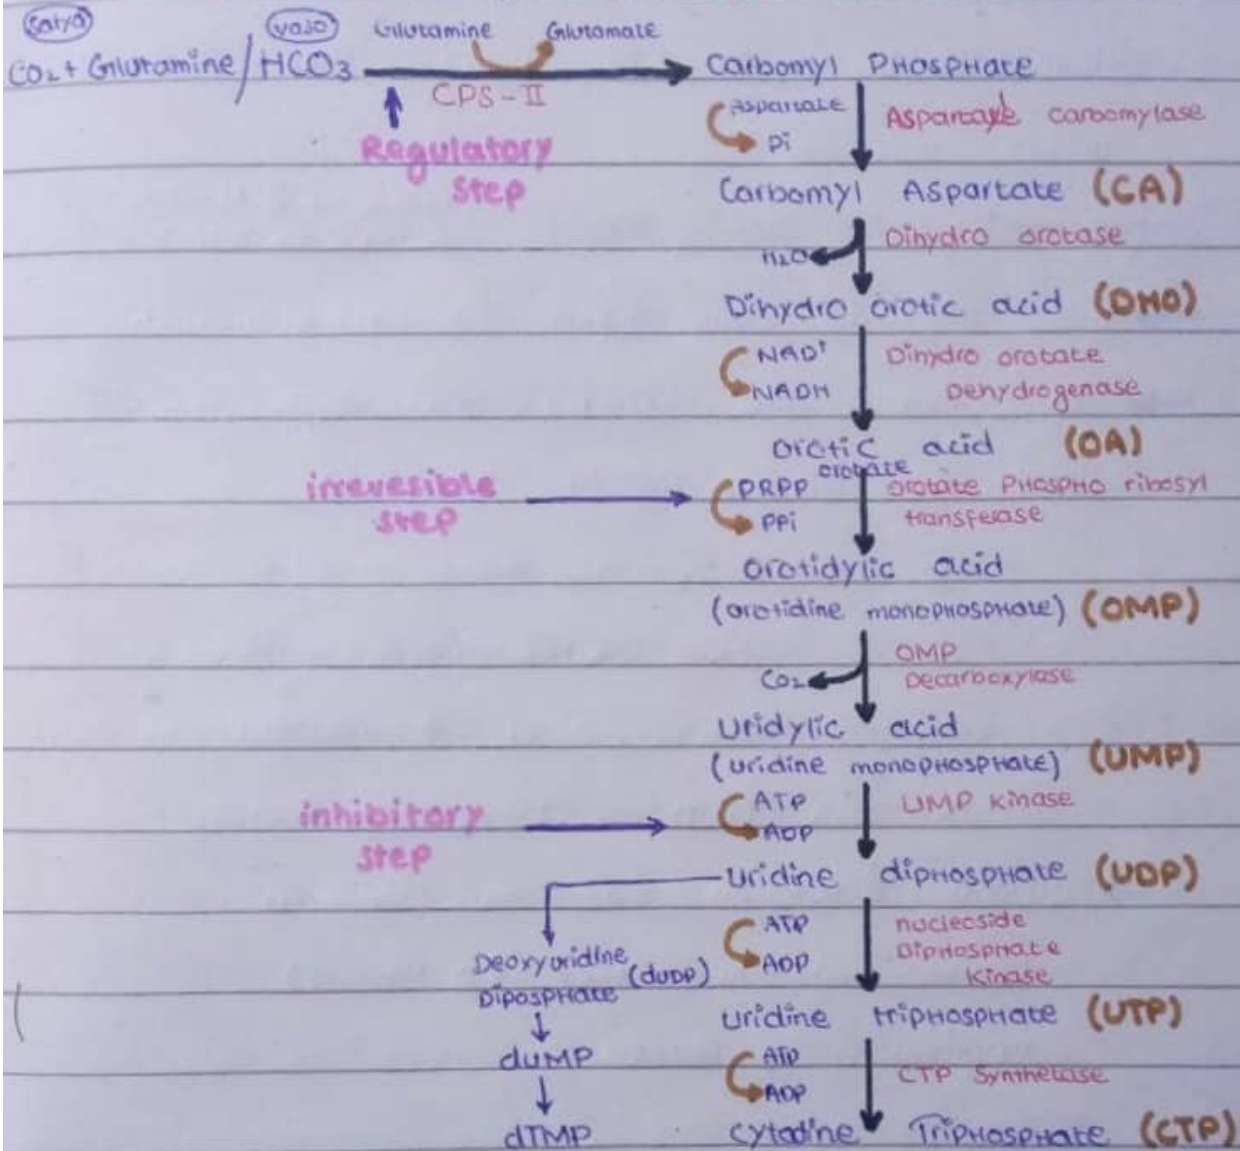 Satya
Vaso
Glutamine Glutamate
CO₂ + Glutamine / HCO₃ Carbomyl Phosphate
CPS-II
Regulatory
Step
Aspartate
Pi
Aspartate carbomylase
Carbomyl Aspartate (CA)
H₂O
Dihydro orotase
Dihydro orotic acid (DHO)
NAD⁺
NADH
Dihydro orotate
Dehydrogenase
Orotic acid (OA)
orotate
irrevesible
step
PRPP
PPi
orotate Phospho ribosyl
transferase
Orotidylic acid
(orotidine monophosphate) (OMP)
CO₂
OMP
Decarboxylase
Uridylic acid
(uridine monophosphate) (UMP)
inhibitory
step
ATP
ADP
UMP Kinase
Uridine diphosphate (UDP)
ATP
ADP
nucleoside
Diphosphate
Kinase
Deoxyuridine
Diposphate (dUDP)
Uridine triphosphate (UTP)
dUMP
ATP
ADP
CTP Synthetase
dTMP
Cytodine Triphosphate (CTP)